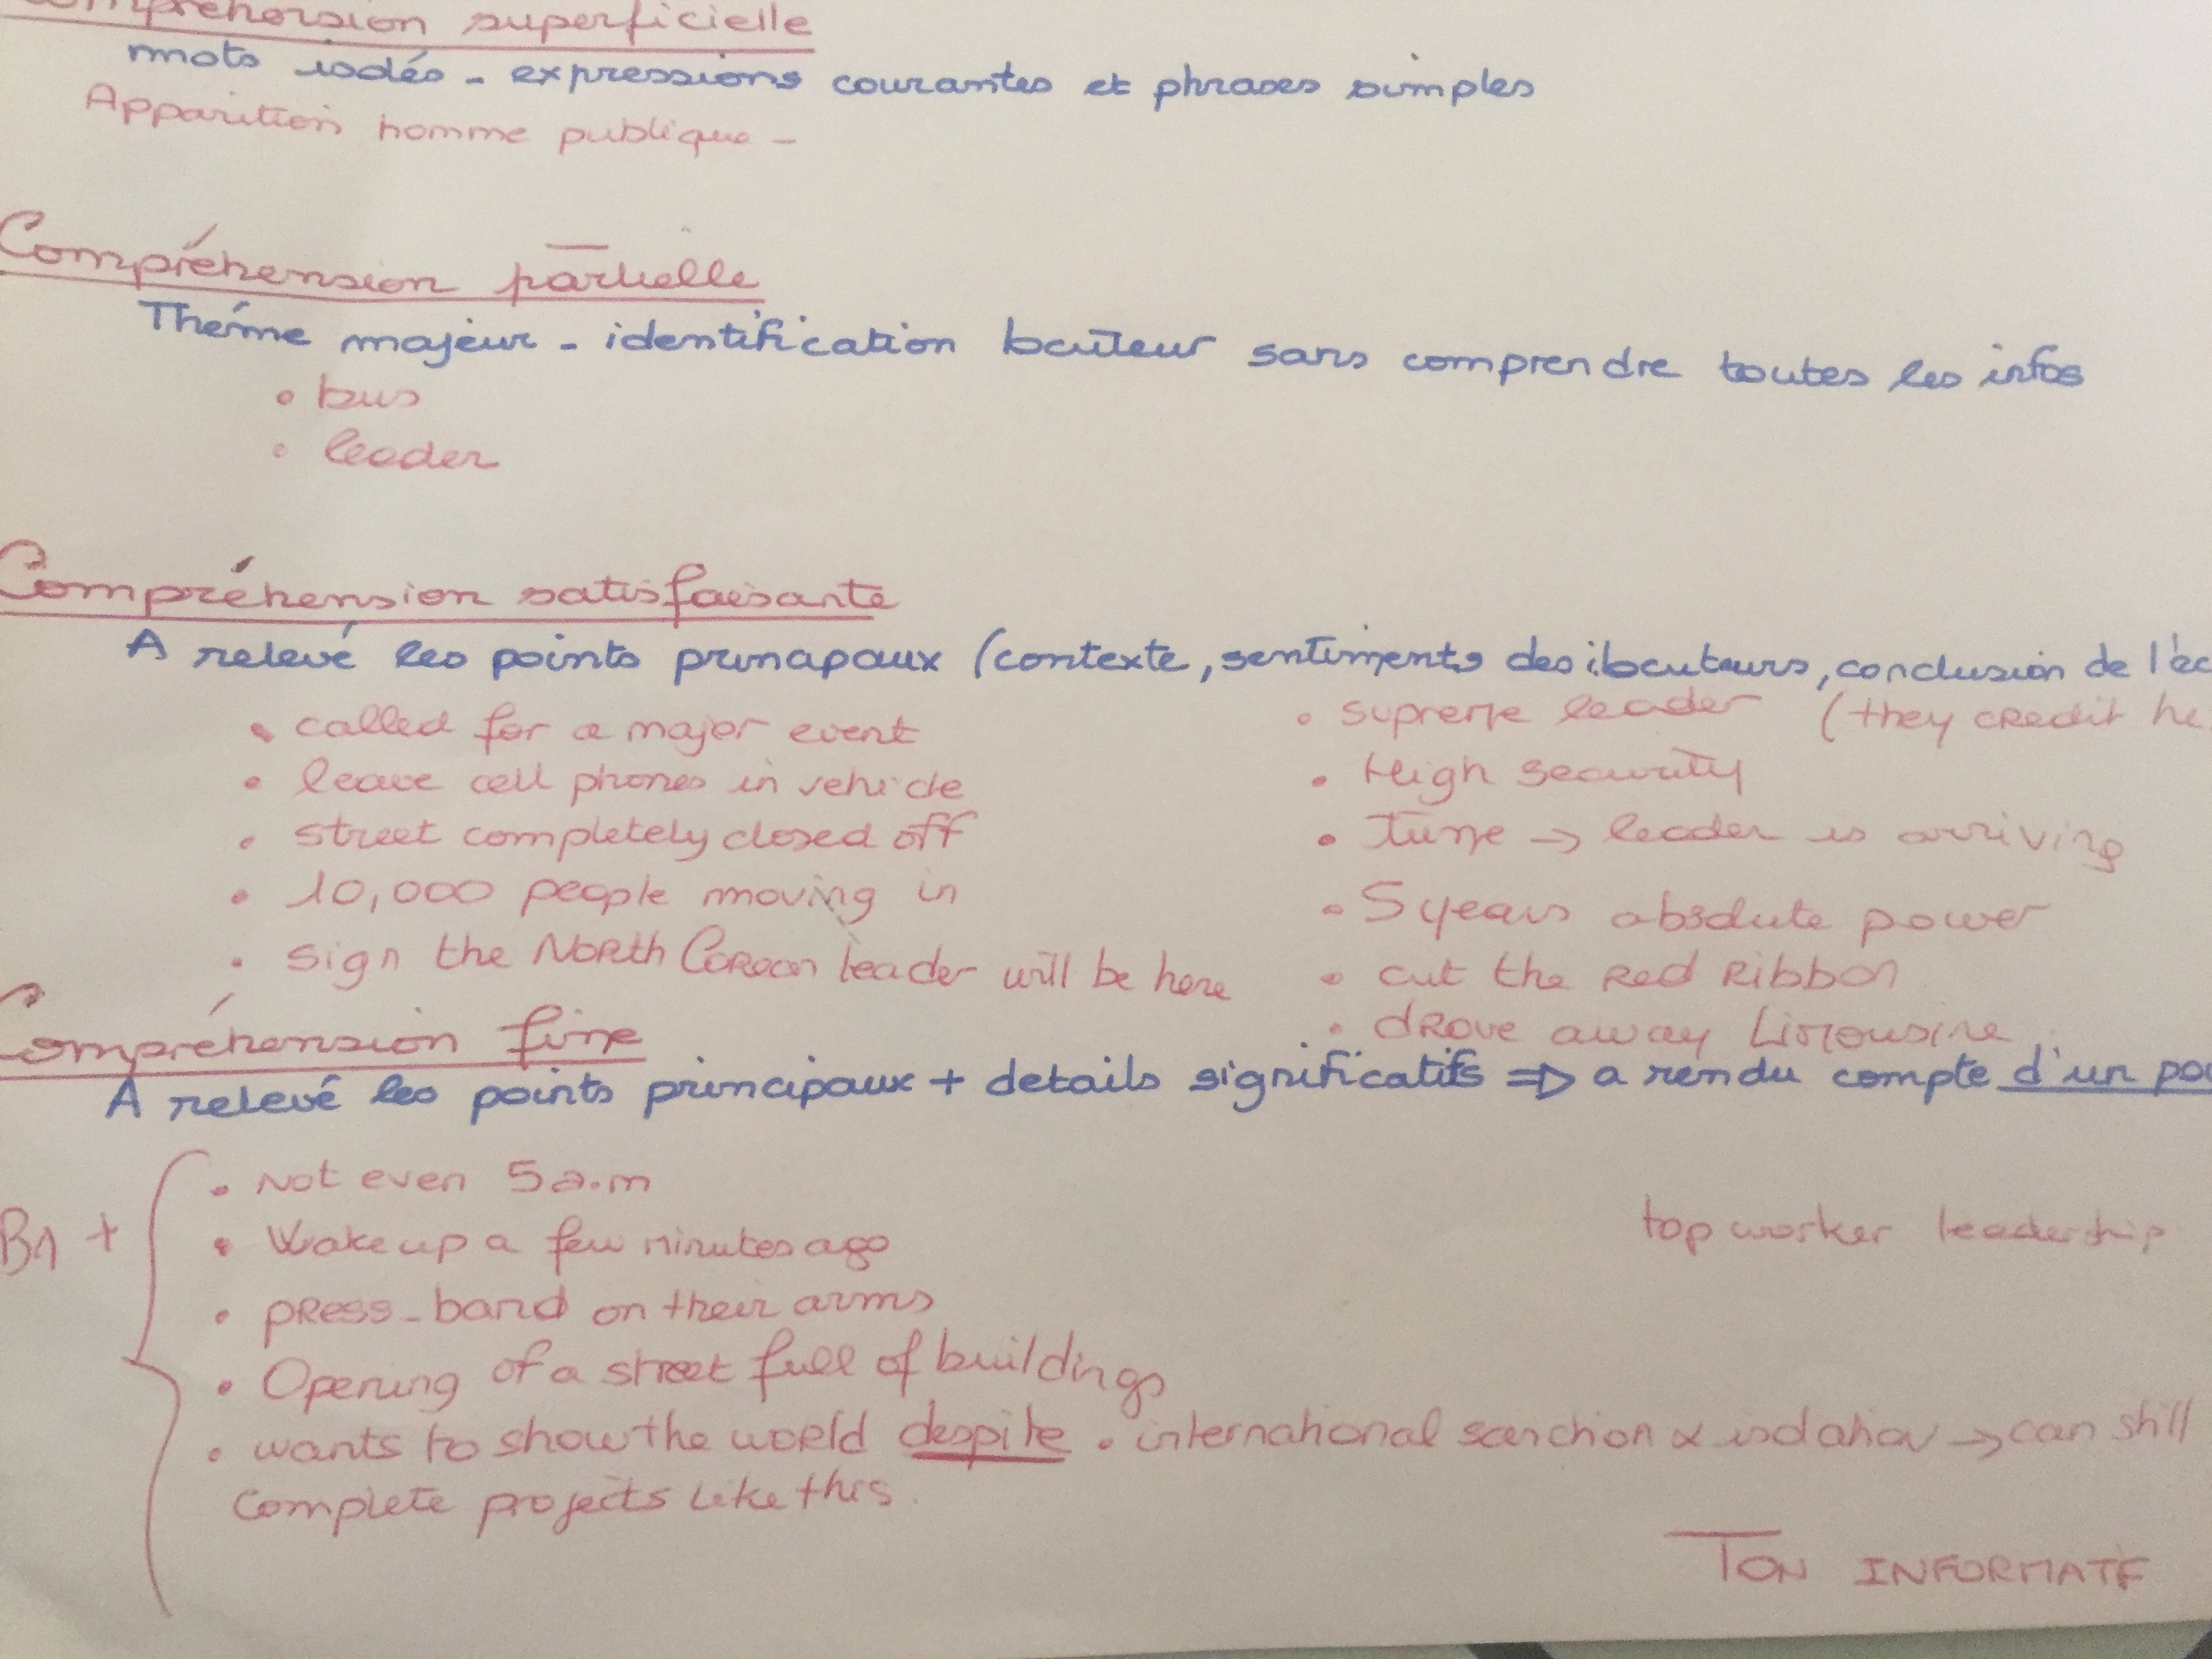 Compréhension superficielle
mots isolés - expressions courantes et phrases simples
Apparition homme publique -
Compréhension partielle
Thème majeur - identification locuteur sans comprendre toutes les infos
• bus
• leader
Compréhension satisfaisante
A relevé les points principaux (contexte, sentiments des locuteurs, conclusion de l'éc
• called for a major event
• leave cell phones in vehicle
• street completely closed off
• 10,000 people moving in
• sign the North Corean leader will be here
• supreme leader (they credit he
• High security
• Tune → leader is arriving
• 5 years absolute power
• cut the red ribbon
• drove away Limousine
Compréhension fine
A relevé les points principaux + details significatifs ⇒ a rendu compte d'un po
B1 +
• Not even 5 a.m
• Wake up a few minutes ago
• press-band on their arms
• Opening of a street full of buildings
• wants to show the world despite • international sanction & isolation → can still
complete projects like this.
top worker leadership
TON INFORMATIF